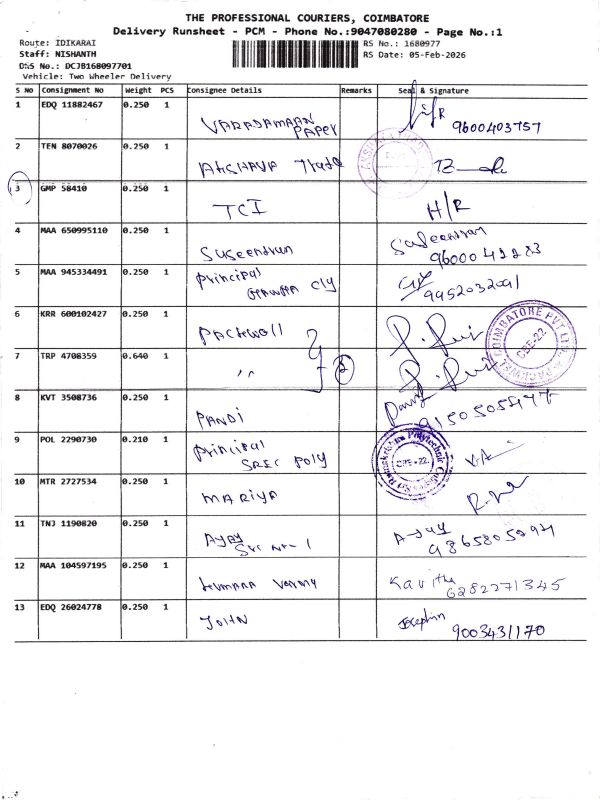 THE PROFESSIONAL COURIERS, COIMBATORE
Delivery Runsheet - PCM - Phone No.:9047080280 - Page No.:1
Route: IDIKARAI
RS No.: 1680977
Staff: NISHANTH
RS Date: 05-Feb-2026
DRS No.: DCJB168097701
Vehicle: Two Wheeler Delivery
S NO Consignment No Weight PCS Consignee Details Remarks Seal & Signature
1 EDQ 11882467 0.250 1
VARADAMAAN PAPER
9600403757
2 TEN 8070026 0.250 1
AKSHAYA Trade
3 GMP 58410 0.250 1
TCI H/R
4 MAA 650995110 0.250 1
Suseendran
5 MAA 945334491 0.250 1
Principal
clg
9952032091
6 KRR 600102427 0.250 1
PACKWELL
COIMBATORE PVT LTD
CBE-22
7 TRP 4708359 0.640 1
" 2
8 KVT 3508736 0.250 1
PANDI
9 POL 2290730 0.210 1
Principal
SREC Poly
Sri Ramakrishna Polytechnic College
CBE-22.
10 MTR 2727534 0.250 1
MARIYA
11 TNJ 1190820 0.250 1
AJAY
Ajay
12 MAA 104597195 0.250 1
Kumara
Kavitha
6282271345
13 EDQ 26024778 0.250 1
JOHN
Josephin
9003431170